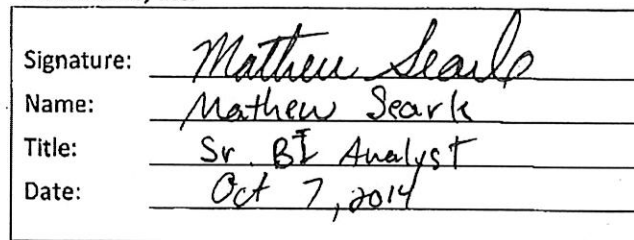 Signature: Mathew Searle
Name: Mathew Searle
Title: Sr. BI Analyst
Date: Oct 7, 2014